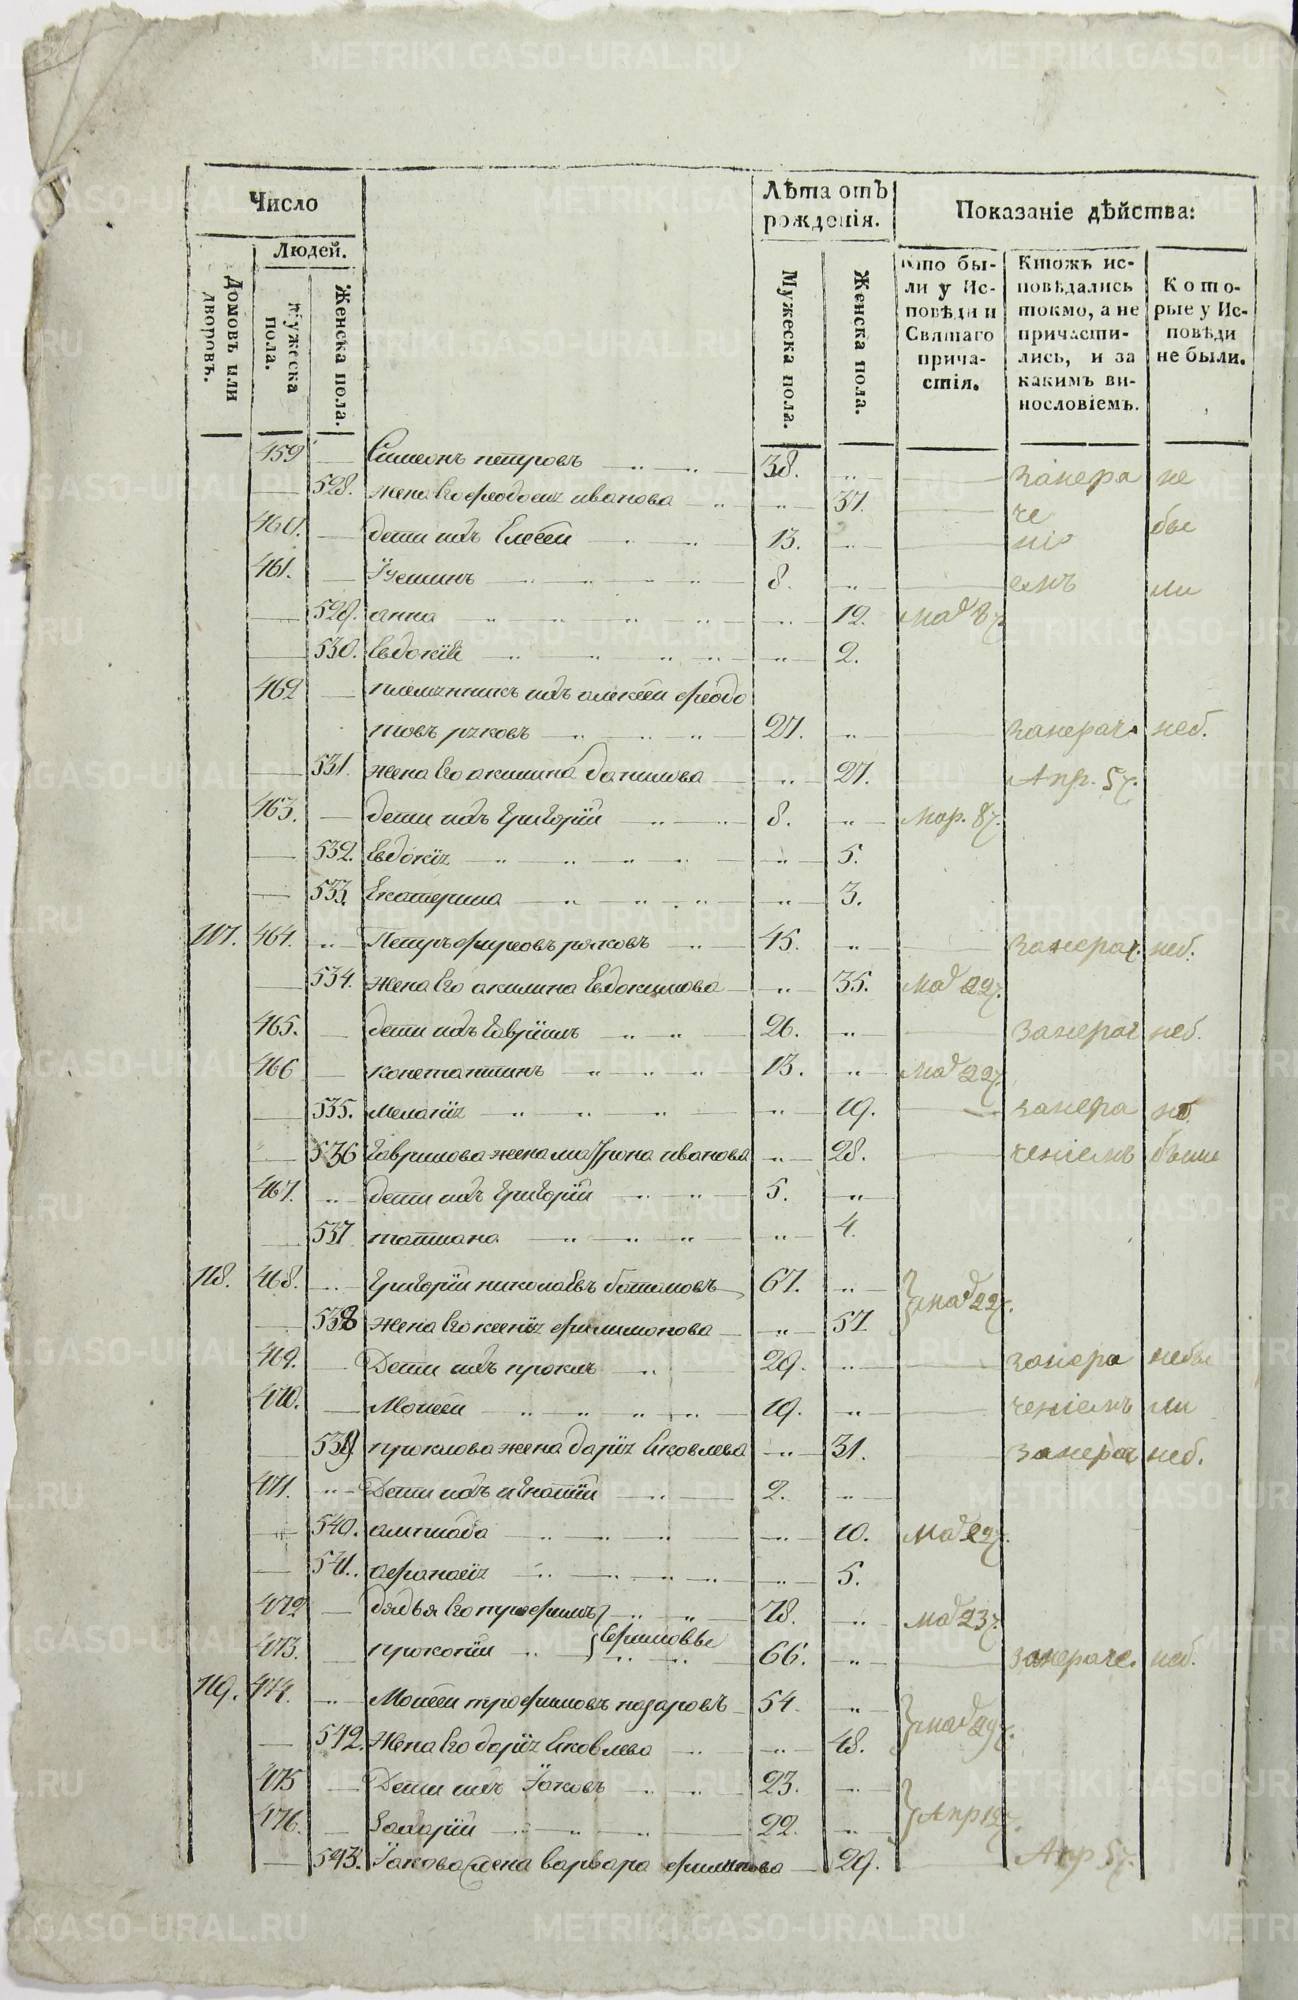 Число
Людей.
Домовъ или дворовъ.
Мужеска пола.
Женска пола.
Лѣта отъ
рожденія.
Мужеска пола.
Женска пола.
Показаніе дѣйства:
Кто бы-
ли у Ис-
повѣди и
Святаго
прича-
стія.
Ктожъ ис-
повѣдались
токмо, а не
причасти-
лись, и за
какимъ ви-
нословіемъ.
Кото-
рые у Ис-
повѣди
не были.
459 Симеонъ петровъ 38. занера не
528. жена его феодосия иванова 37. че
460. дети ихъ Елесеи 13. ніе бы
461. Иустинъ 8. емъ ли
529. анна 12. мар 8
530. евдокия 2.
462 племянникъ ихъ алексеи федо
товъ ряковъ 27. занерач. неб.
531. жена его акилина данилова 27. Апр. 5
463. дети ихъ григорій 8. мар. 8
532. Евдокія 5.
533. Екатерина 3.
117. 464. Петръ фирсовъ ряковъ 45. занерач. неб.
534. жена его акилина Евдокимова 35. мар 22
465. дети ихъ гавріилъ 26. занерач неб.
466 константинъ 13. мар 22
535. меланія 19. занера не
536 гаврилова жена матрона иванова 28. ченіемъ были
467. дети ихъ григорій 5.
537 татиана 4.
118. 468. григорій николаевъ баталовъ 67. мар 22
538 жена его ксенія филимонова 57
469. Дети ихъ проклъ 29. занера небы
470. Моисеи 19. ченіемъ ли
539. проклова жена дарія яковлева 31. занерач неб.
471. Дети ихъ игнатій 2.
540. 10. мар 29
541. афанасія 5.
472 дядья его трофимъ 78. мар 23
473. прокопій Ефимовы 66. занераче. неб.
119. 474. Моисеи трофимовъ назаровъ 54. мар 29
542. Жена его дарія яковлева 48.
475 Дети ихъ Іаковъ 23. Апр 12
476. Захарій 22.
543. Іакова жена варвара филипова 29. Апр 5
METRIKI.GASO-URAL.RU